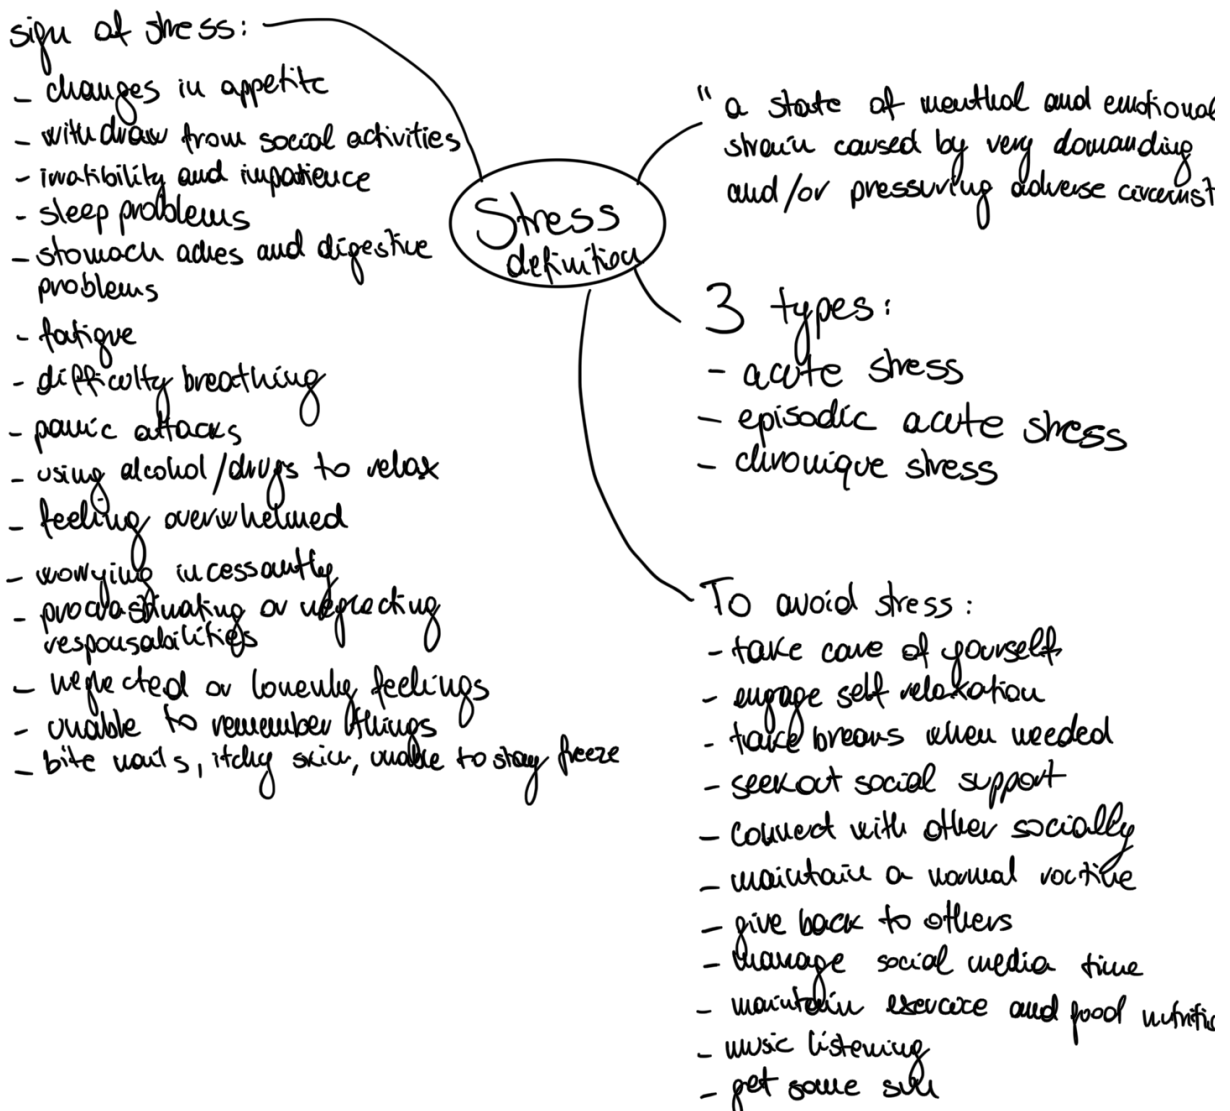 sign of stress:
- changes in appetite
- withdraw from social activities
- irratibility and impatience
- sleep problems
- stomach aches and digestive
problems
- fatigue
- difficulty breathing
- panic attacks
- using alcohol/drugs to relax
- feeling overwhelmed
- worrying incessantly
- procrastinating or neglecting
responsabilities
- neglected or lonenly feelings
- unable to remember things
- bite nails, itchy skin, unable to stay freeze
Stress
definition
" a state of menthal and emotional
strain caused by very domanding
and/or pressuring adverse circumst
3 types:
- acute stress
- episodic acute stress
- chronique stress
To avoid stress:
- take care of yourself
- engage self relaxation
- take breaks when needed
- seek out social support
- connect with other socially
- maintain a normal routine
- give back to others
- manage social media time
- maintain exercice and food nutritio
- music listening
- get some sun